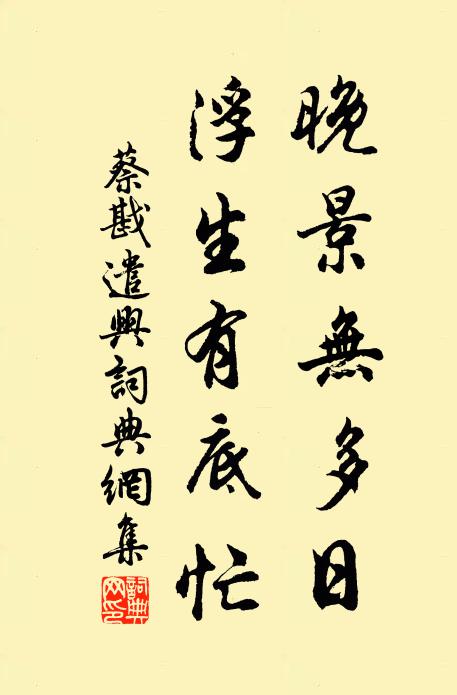 晚景無多日
浮生有底忙
蔡戡遣興詞典網集
詞典網印